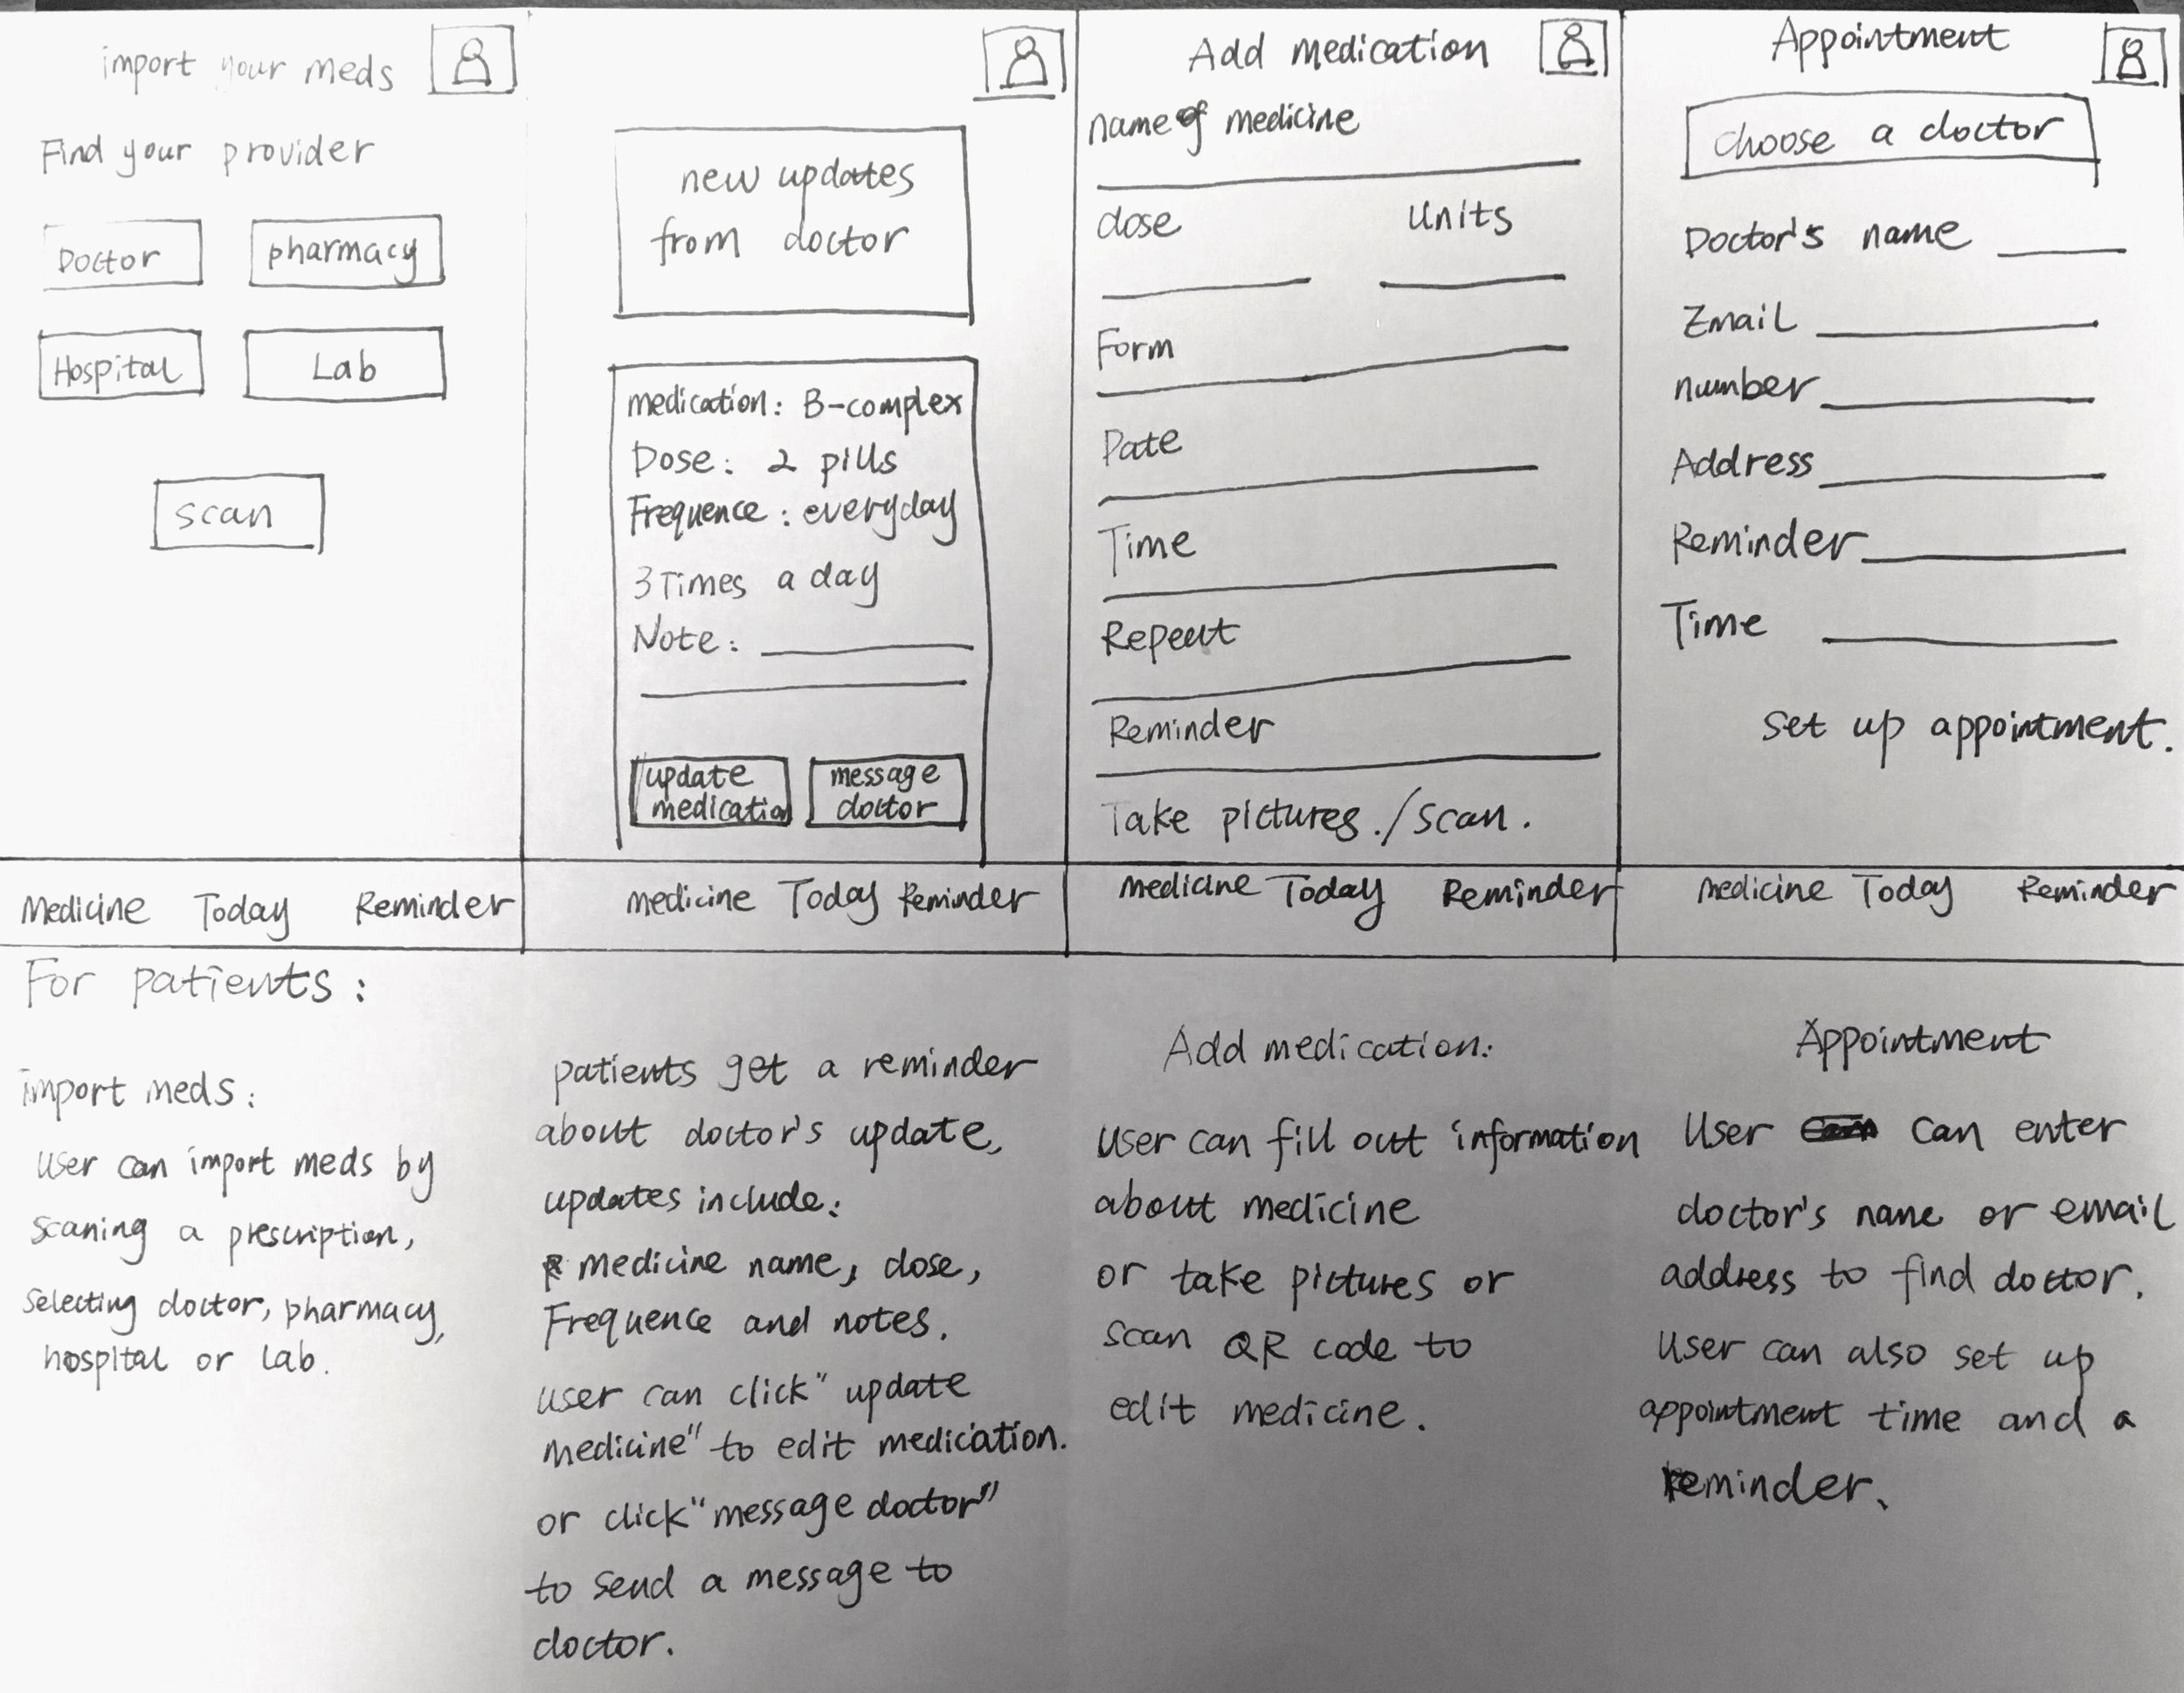 import your meds
Find your provider
Doctor
pharmacy
Hospital
Lab
scan
Medicine Today Reminder
new updates
from doctor
medication: B-complex
Dose: 2 pills
Frequence: everyday
3 Times a day
Note:
update
medication
message
doctor
medicine Today Reminder
Add medication
name of medicine
dose
Units
Form
Date
Time
Repeat
Reminder
Take pictures./scan.
medicine Today Reminder
Appointment
choose a doctor
Doctor's name
Email
number
Address
Reminder
Time
set up appointment.
medicine Today Reminder
For patients:
import meds:
user can import meds by
scaning a prescription,
selecting doctor, pharmacy,
hospital or lab.
patients get a reminder
about doctor's update,
updates include:
medicine name, dose,
Frequence and notes.
user can click "update
medicine" to edit medication.
or click "message doctor"
to send a message to
doctor.
Add medication:
User can fill out information
about medicine
or take pictures or
scan QR code to
edit medicine.
Appointment
User can enter
doctor's name or email
address to find doctor.
User can also set up
appointment time and a
Reminder.